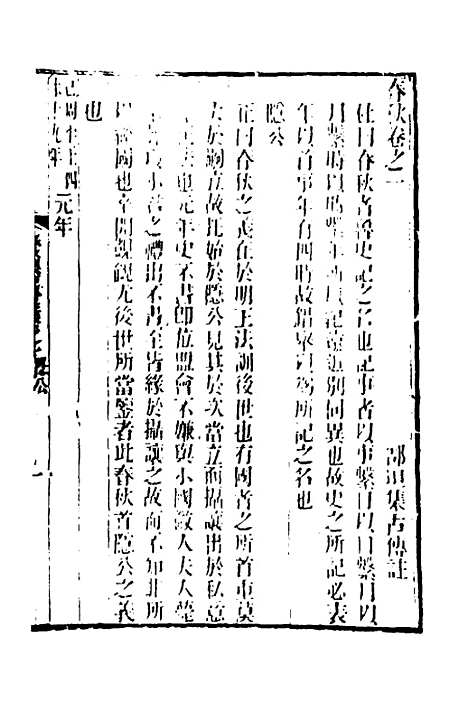 春秋卷之一
邵瑣集古傳註
杜曰春秋者魯史記之名也記事者以事繫日以日繫月以
月繫時以時繫年所以記遠近別同異也故史之所記必表
年以首事年有四時故錯舉以為所記之名也
隱公
正曰春秋之志在於明王法訓後世也有國者之所首重莫
大於嗣立故托始於隱公見其於次當立而攝讓出於私意
也元年史不書即位盟會不嫌與小國微人夫人薨
小君之禮出不書至皆緣於攝讓之故而不知非所
以當國也幸開覬覦尤後世所當鑒者此春秋首隱公之義
也
元年